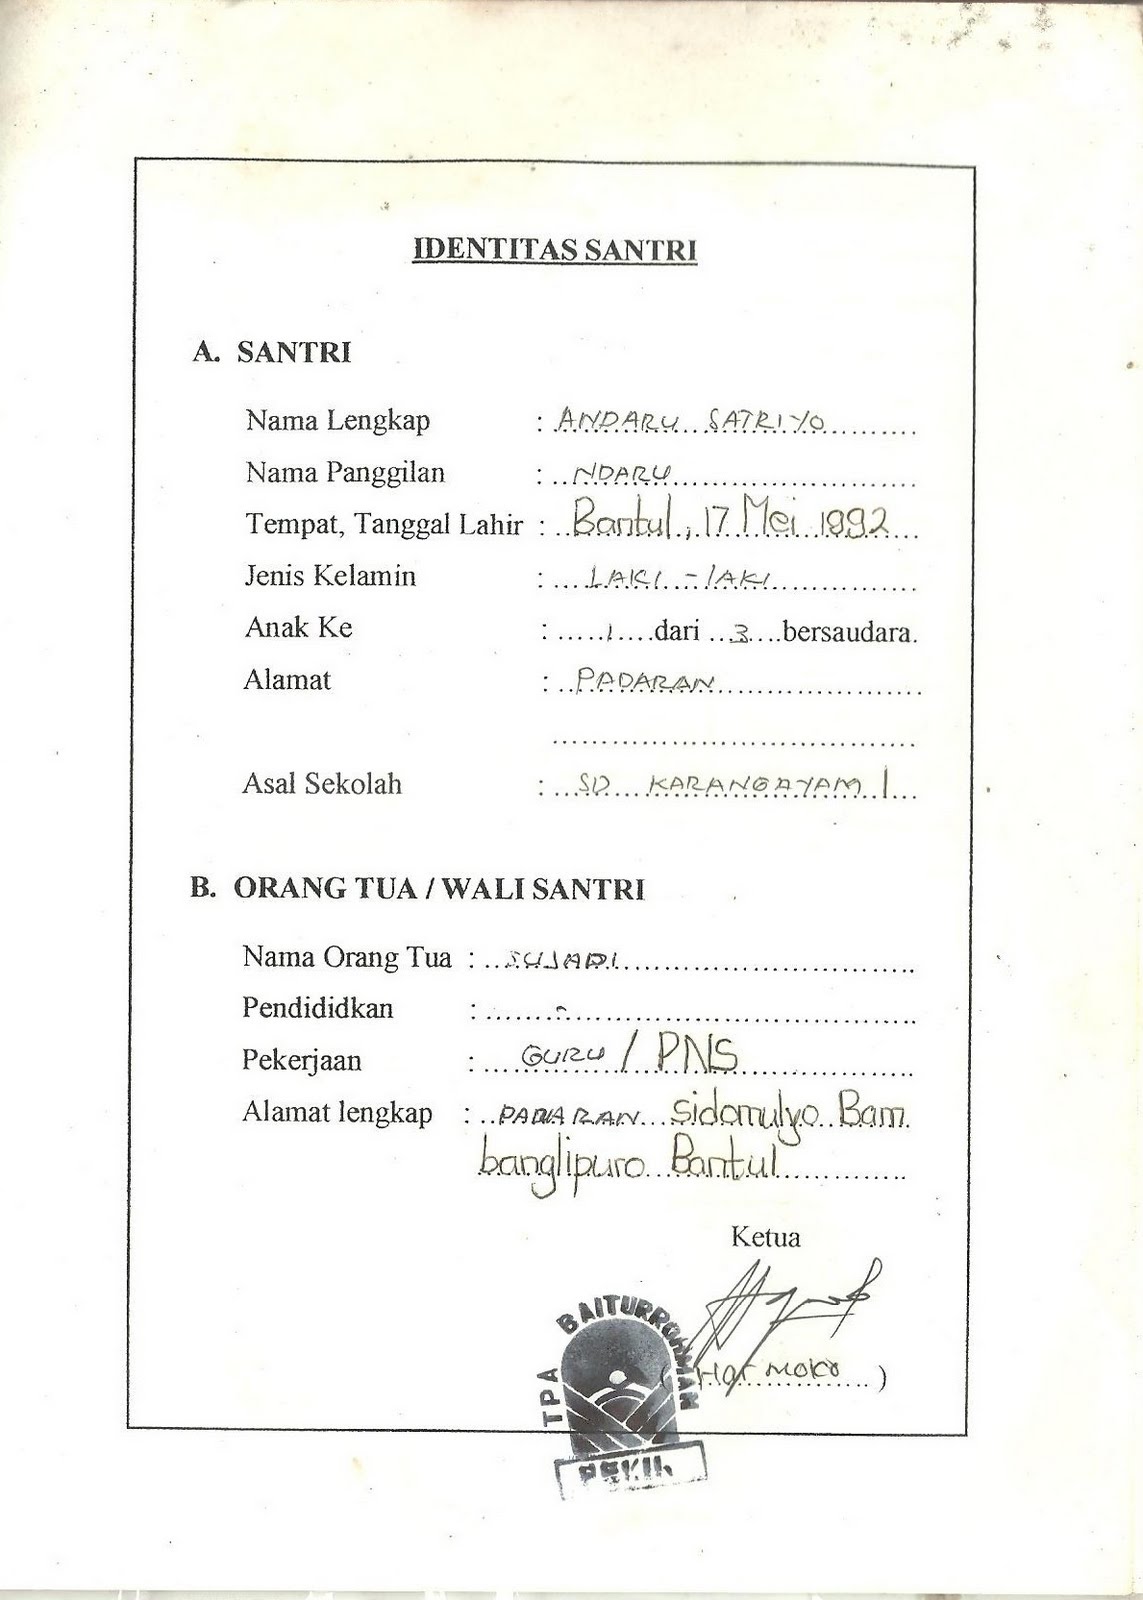 IDENTITAS SANTRI
A. SANTRI
Nama Lengkap : ANDARU SATRIYO
Nama Panggilan : NDARU
Tempat, Tanggal Lahir : Bantul, 17 Mei 1992
Jenis Kelamin : LAKI - laki
Anak Ke : 1 dari 3 bersaudara.
Alamat : PADARAN
Asal Sekolah : SD KARANGGAYAM 1
B. ORANG TUA / WALI SANTRI
Nama Orang Tua : SUJADI
Pendididkan : -
Pekerjaan : GURU / PNS
Alamat lengkap : PADARAN sidomulyo Bam
banglipuro Bantul
Ketua
TPA BAITURROHMAN
( HARMOKO )